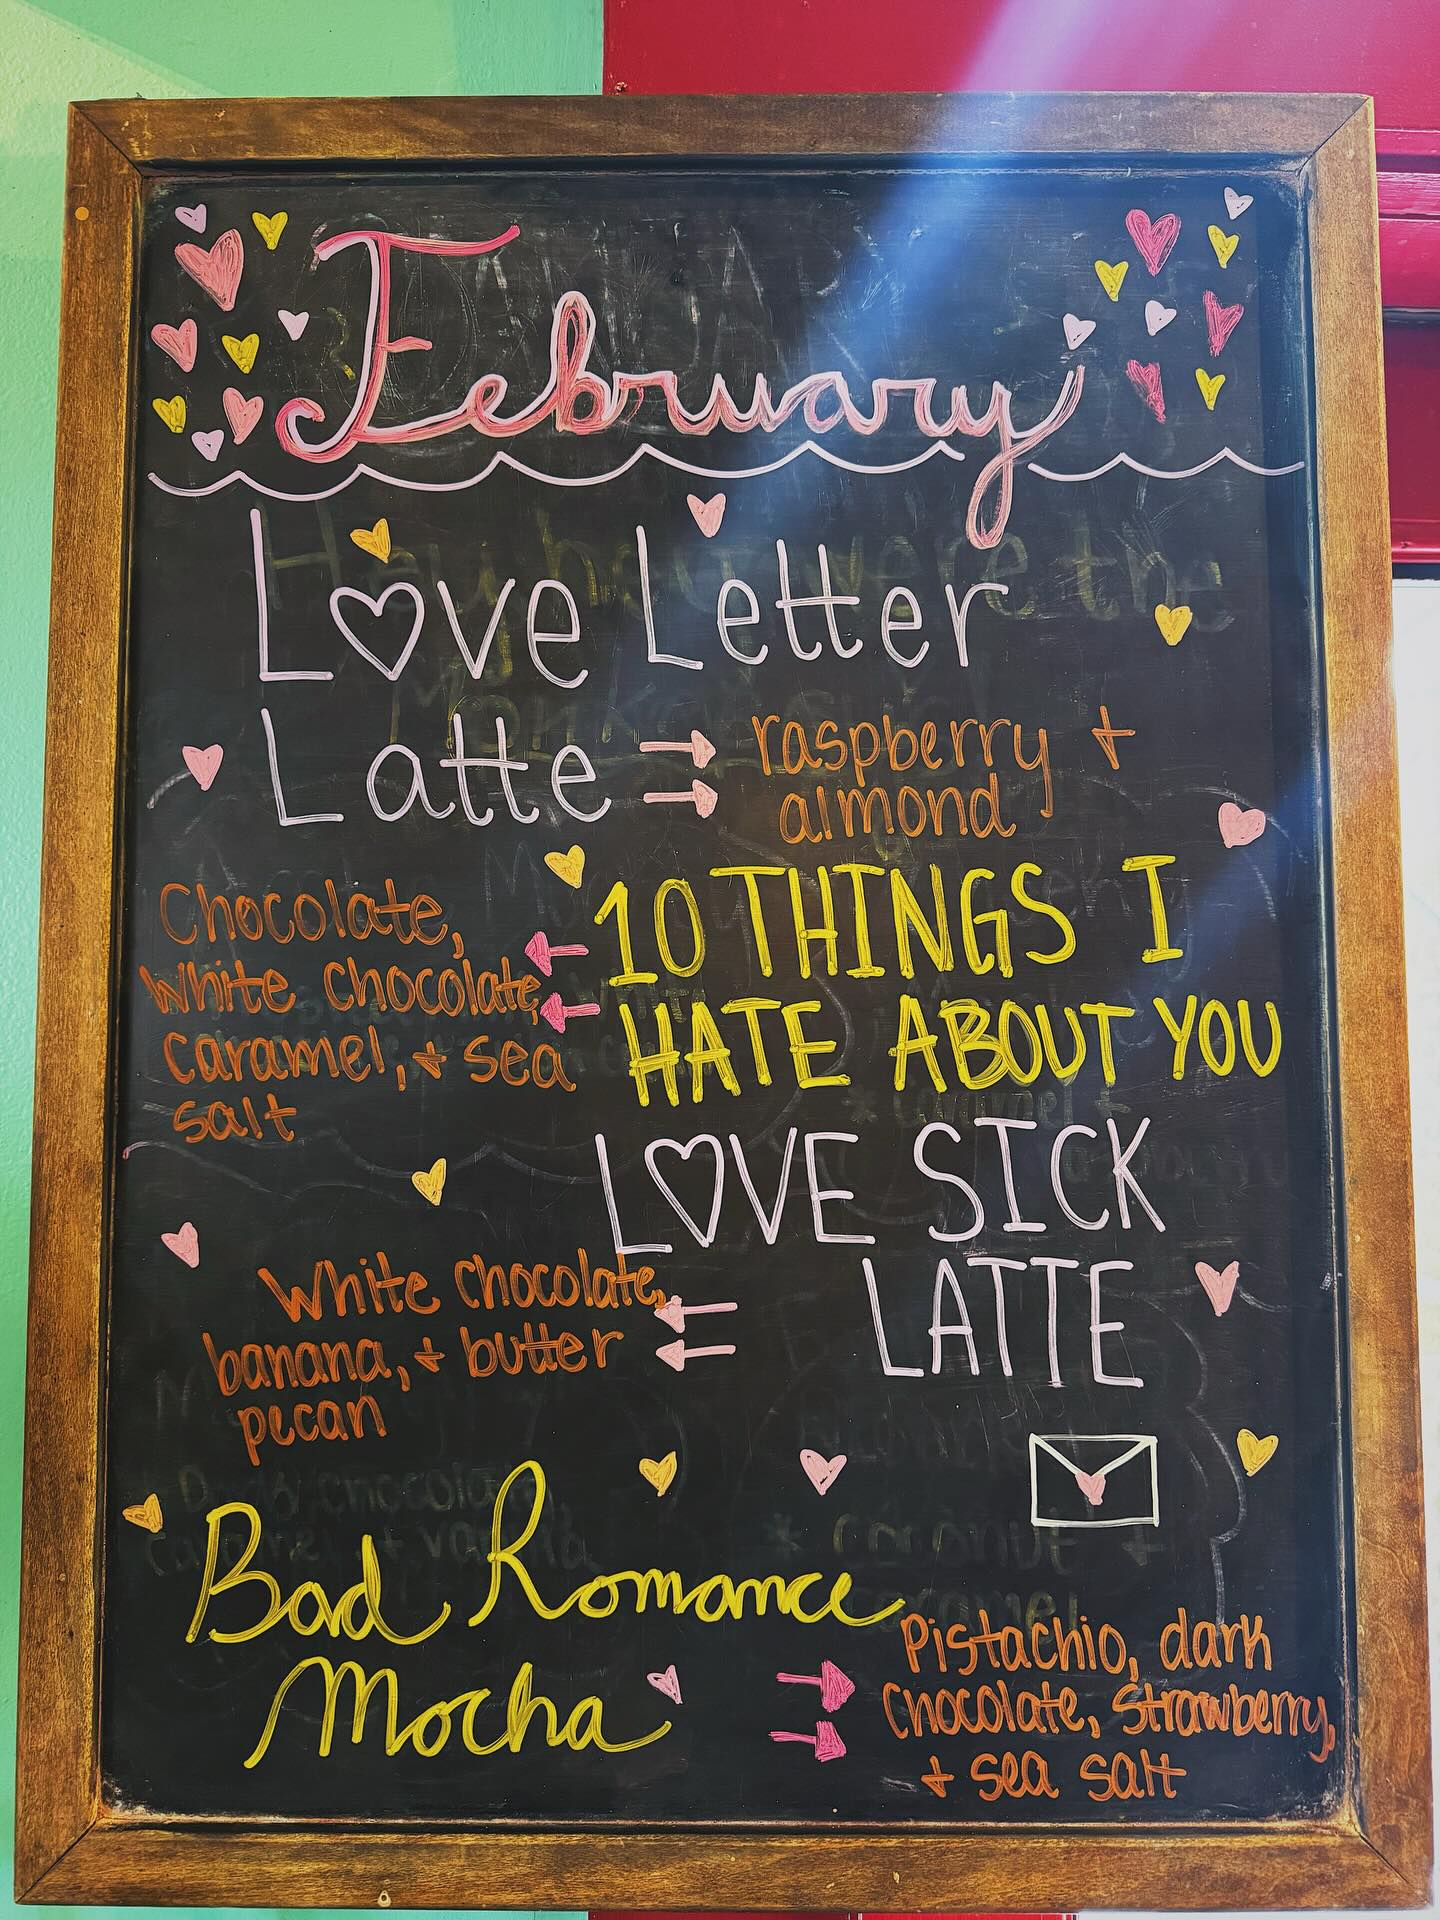 February
Love Letter
Latte
raspberry +
almond
10 THINGS I
HATE ABOUT YOU
Chocolate,
White chocolate,
caramel, + sea
salt
LOVE SICK
LATTE
White chocolate,
banana, + butter
pecan
Bad Romance
Mocha
Pistachio, dark
chocolate, strawberry,
+ sea salt